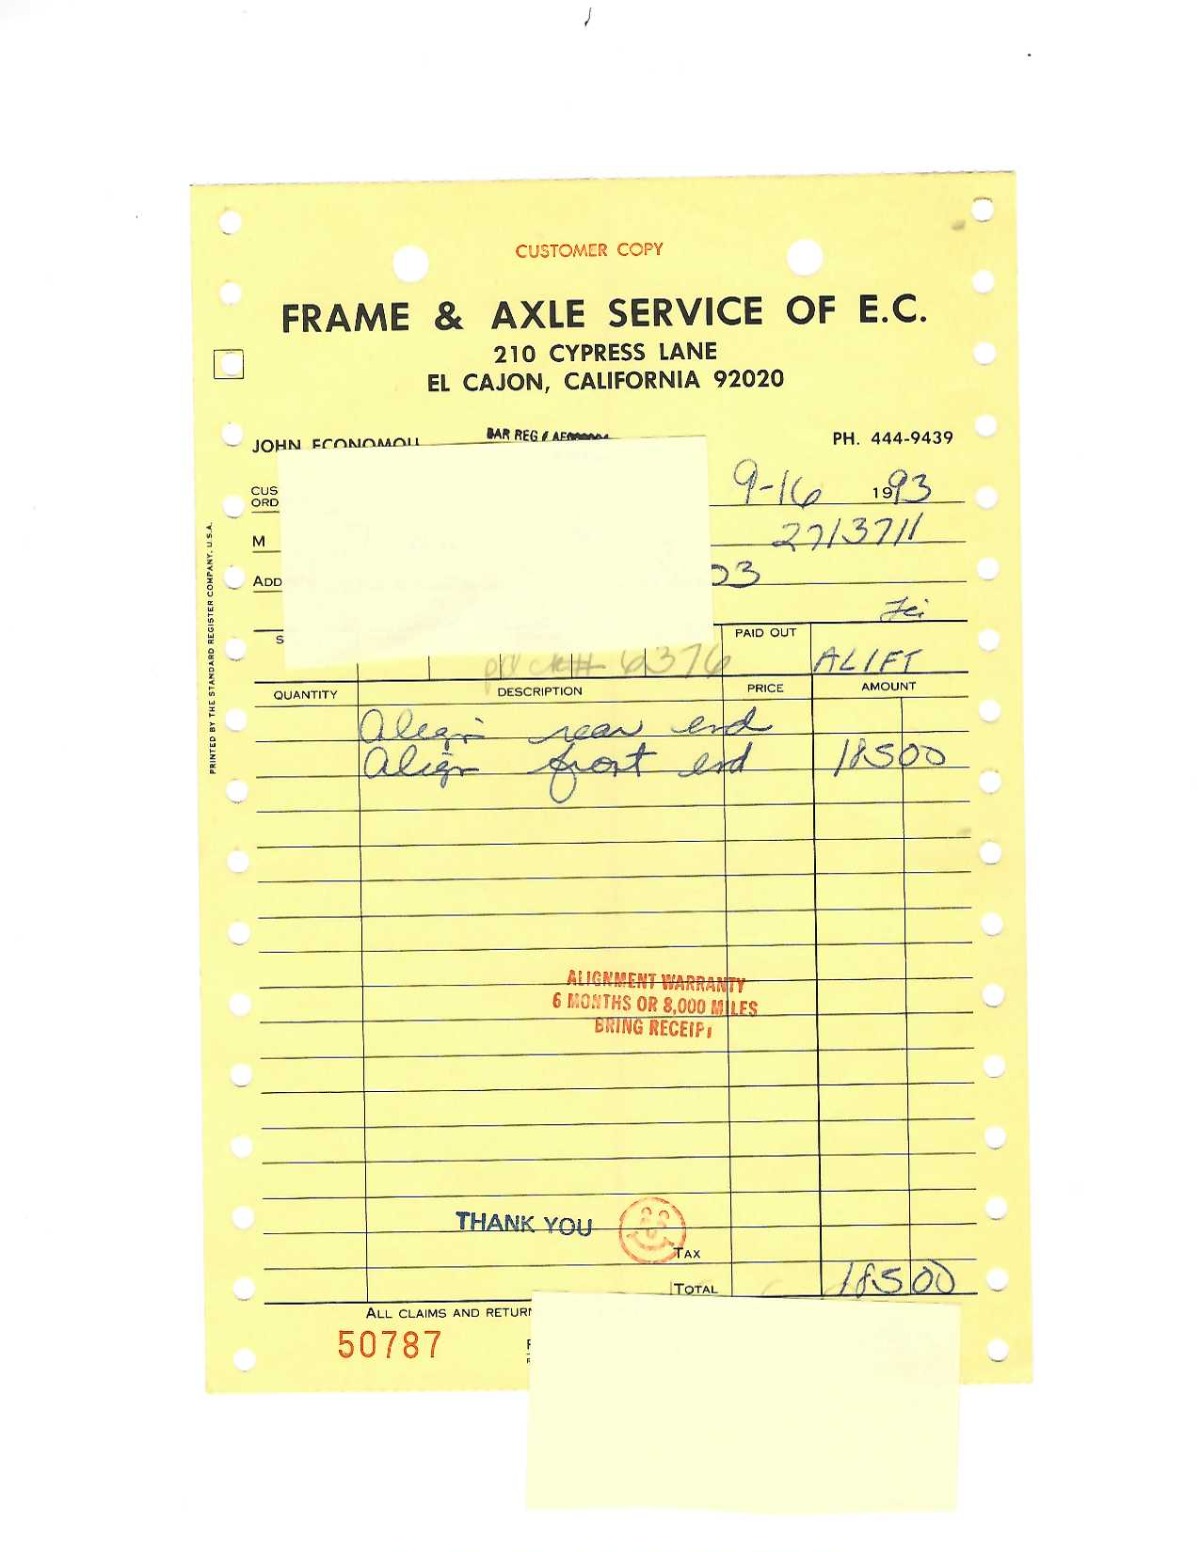 CUSTOMER COPY
FRAME & AXLE SERVICE OF E.C.
210 CYPRESS LANE
EL CAJON, CALIFORNIA 92020
JOHN ECONOMOU BAR REG # PH. 444-9439
CUS 9-16 1993
ORD
M 2713711
ADD 03
S PAID OUT
pd ck# 6376 ALIFT
QUANTITY DESCRIPTION PRICE AMOUNT
Align rear end
Align front end 185 00
ALIGNMENT WARRANTY
6 MONTHS OR 8,000 MILES
BRING RECEIPT
THANK YOU
TAX
TOTAL 185 00
ALL CLAIMS AND RETURN
50787
PRINTED BY THE STANDARD REGISTER COMPANY, U.S.A.